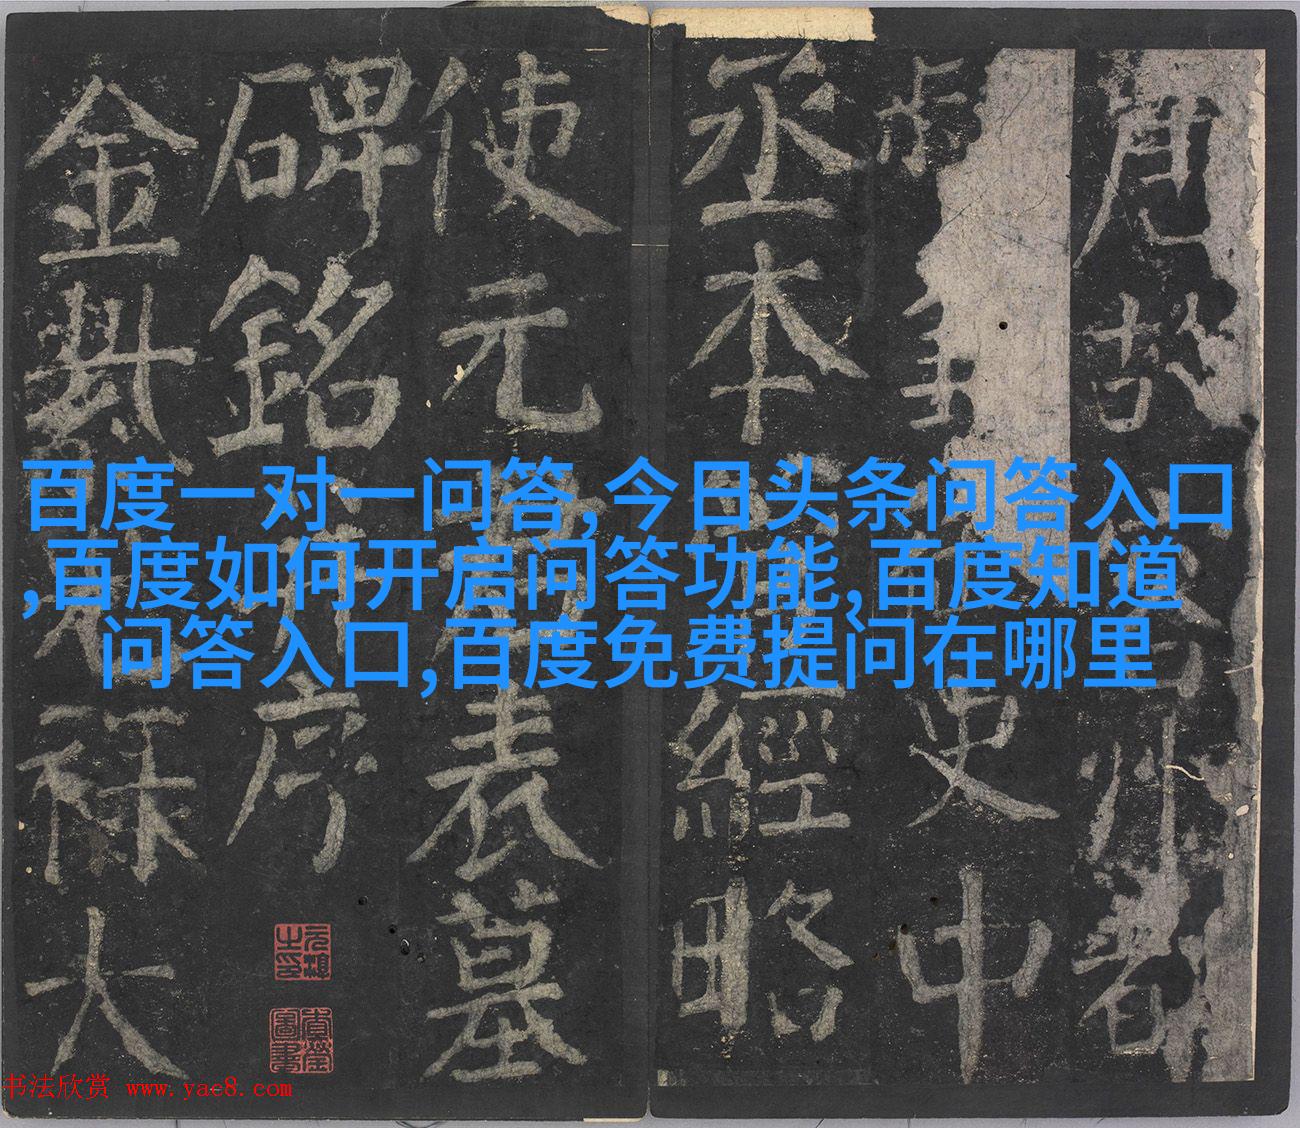 唐故州都
史中
丞本經略
使元表墓
碑銘序
金紫祿大
百度一对一问答,今日头条问答入口
,百度如何开启问答功能,百度知道
问答入口,百度免费提问在哪里
书法欣赏 www.yac8.com